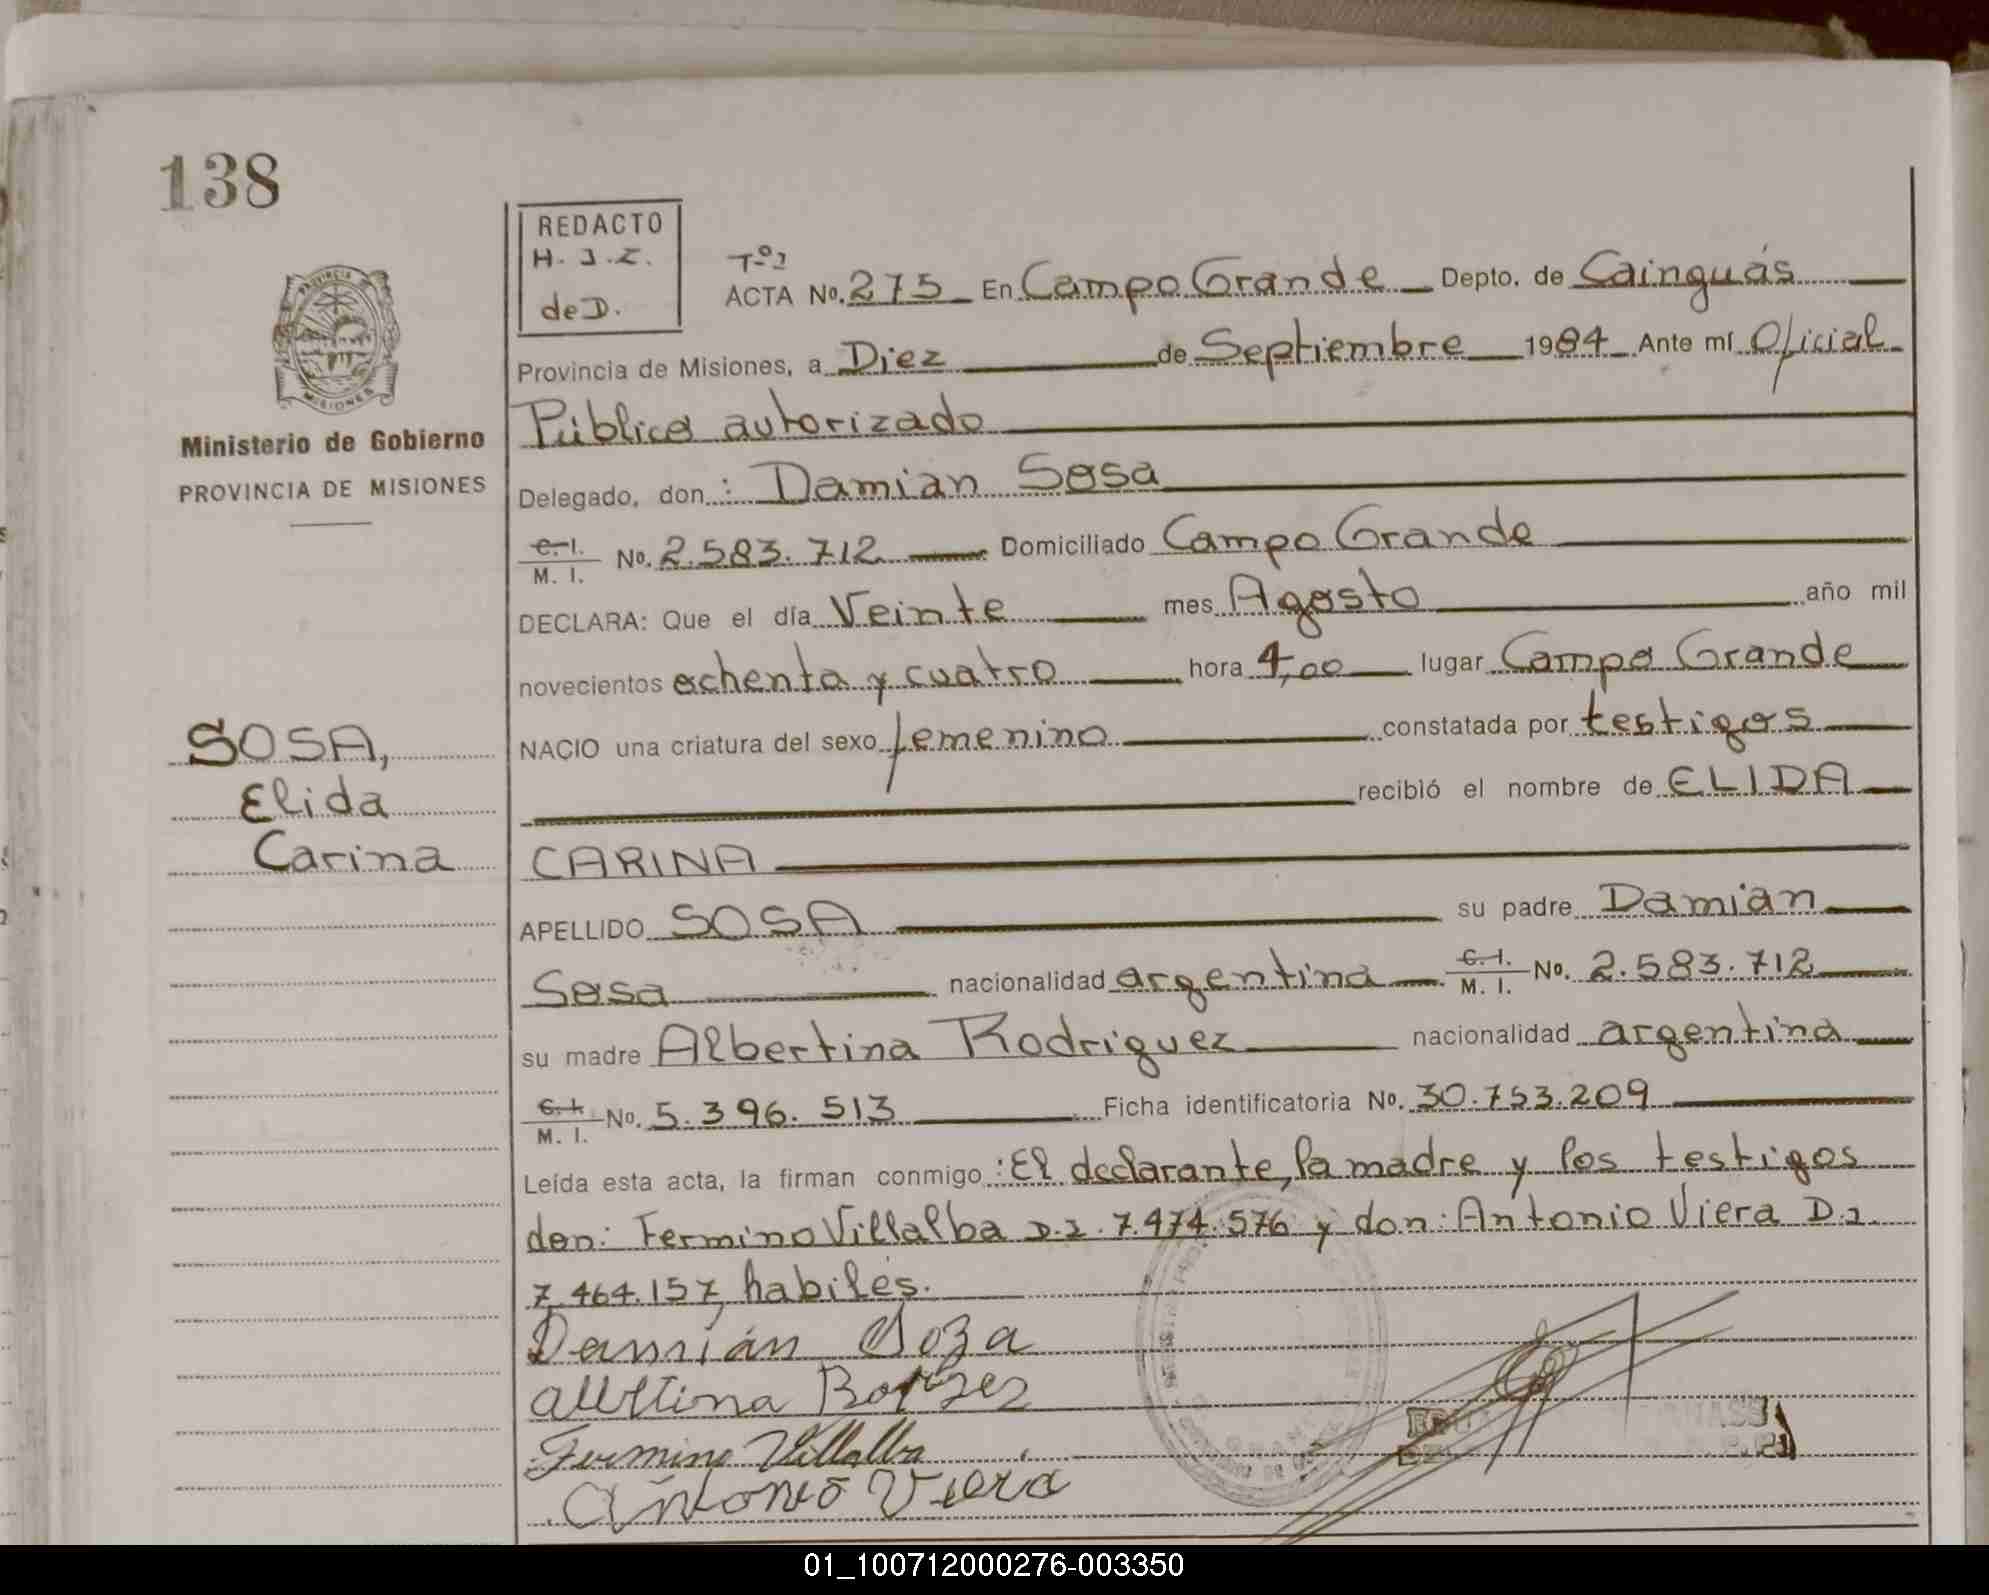 138
REDACTO
H. J. Z.
de D.
PROVINCIA
MISIONES
Ministerio de Gobierno
PROVINCIA DE MISIONES
Tº2
ACTA No. 275 En Campo Grande Depto. de Cainguás
Provincia de Misiones, a Diez de Septiembre 1984 Ante mí Oficial
Público autorizado
Delegado, don : Damian Sosa
C. I. / M. I. No. 2.583.712 Domiciliado Campo Grande
DECLARA: Que el día Veinte mes Agosto año mil
novecientos ochenta y cuatro hora 4,00 lugar Campo Grande
NACIO una criatura del sexo femenino constatada por testigos
recibió el nombre de ELIDA
CARINA
SOSA,
Elida
Carina
APELLIDO SOSA su padre Damián
Sosa nacionalidad argentina C. I. / M. I. No. 2.583.712
su madre Albertina Rodriguez nacionalidad argentina
C. I. / M. I. No. 5.396.513 Ficha identificatoria No. 30.753.209
Leída esta acta, la firman conmigo : El declarante, la madre y los testigos
don: Fermino Villalba D.I. 7.474.576 y don: Antonio Viera D.I.
7.464.157, habiles.
Damián Soza
Fermino Villalba
Antonio Viera
01_100712000276-003350